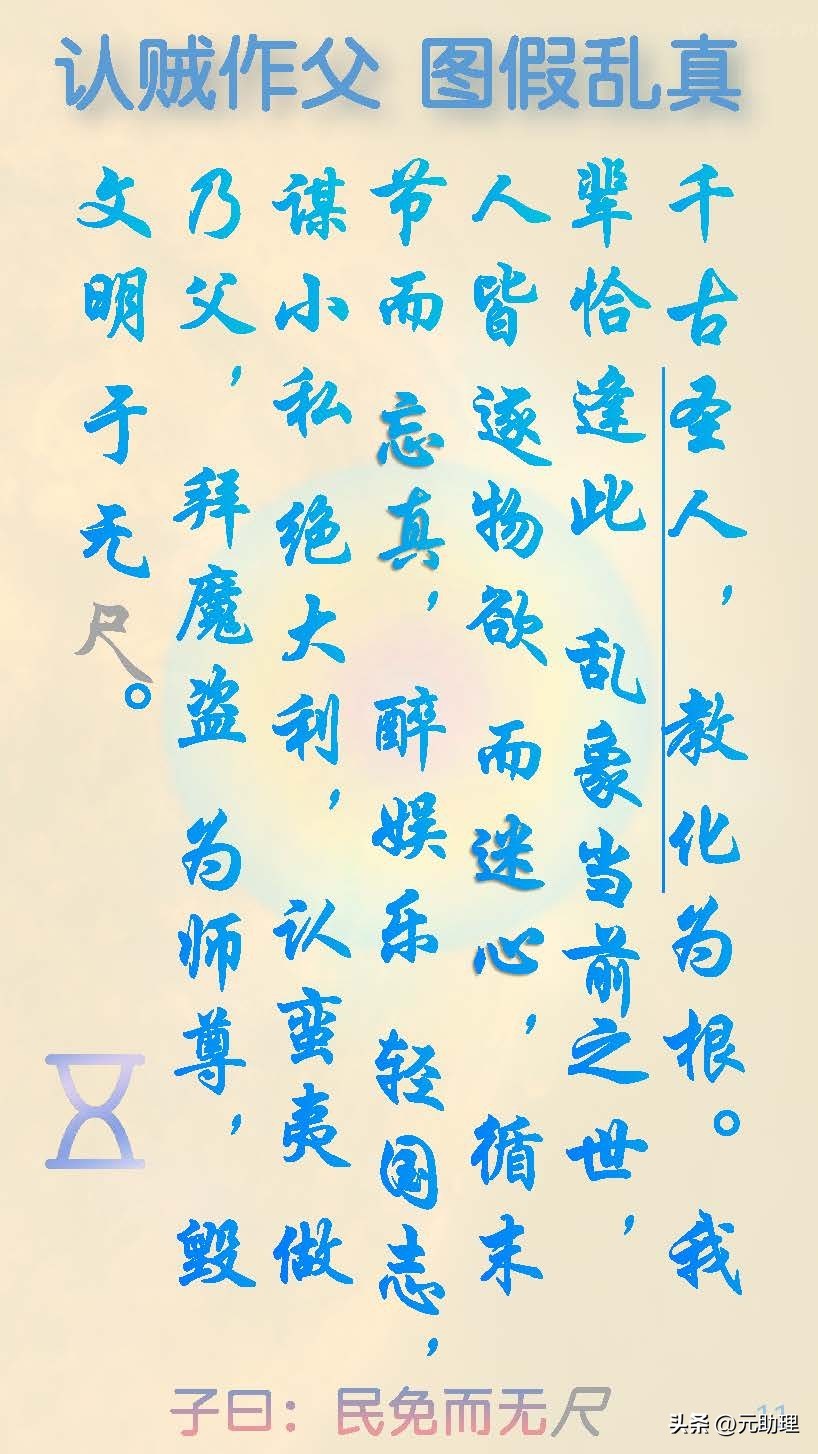 认贼作父 图假乱真
千古圣人，教化为根。我
辈恰逢此 乱象当前之世，
人皆逐物欲 而迷心，循末
节而 忘真，醉娱乐 轻国志，
谋小私绝大利，认蛮夷做
乃父，拜魔盗 为师尊，毁
文明于无尺。
子曰：民免而无尺
11
头条 @元助理